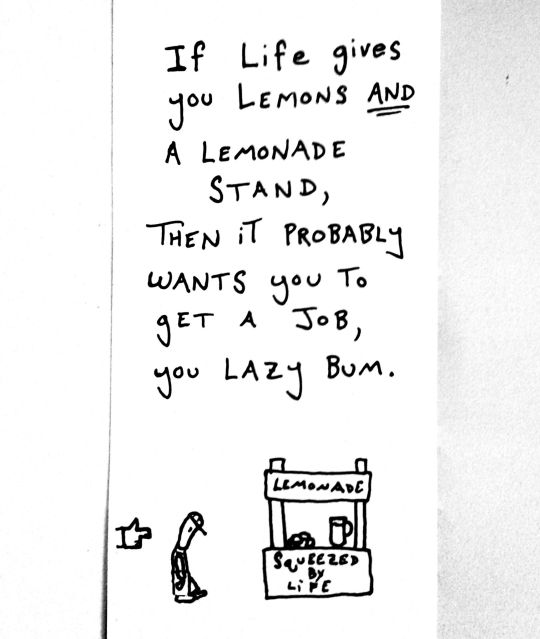 If Life gives
you LEMONS AND
A LEMONADE
STAND,
THEN iT PROBABLY
WANTS you To
gET A JOB,
you LAZy BUM.
LEMONADE
SQUEEZED
By
LiFE